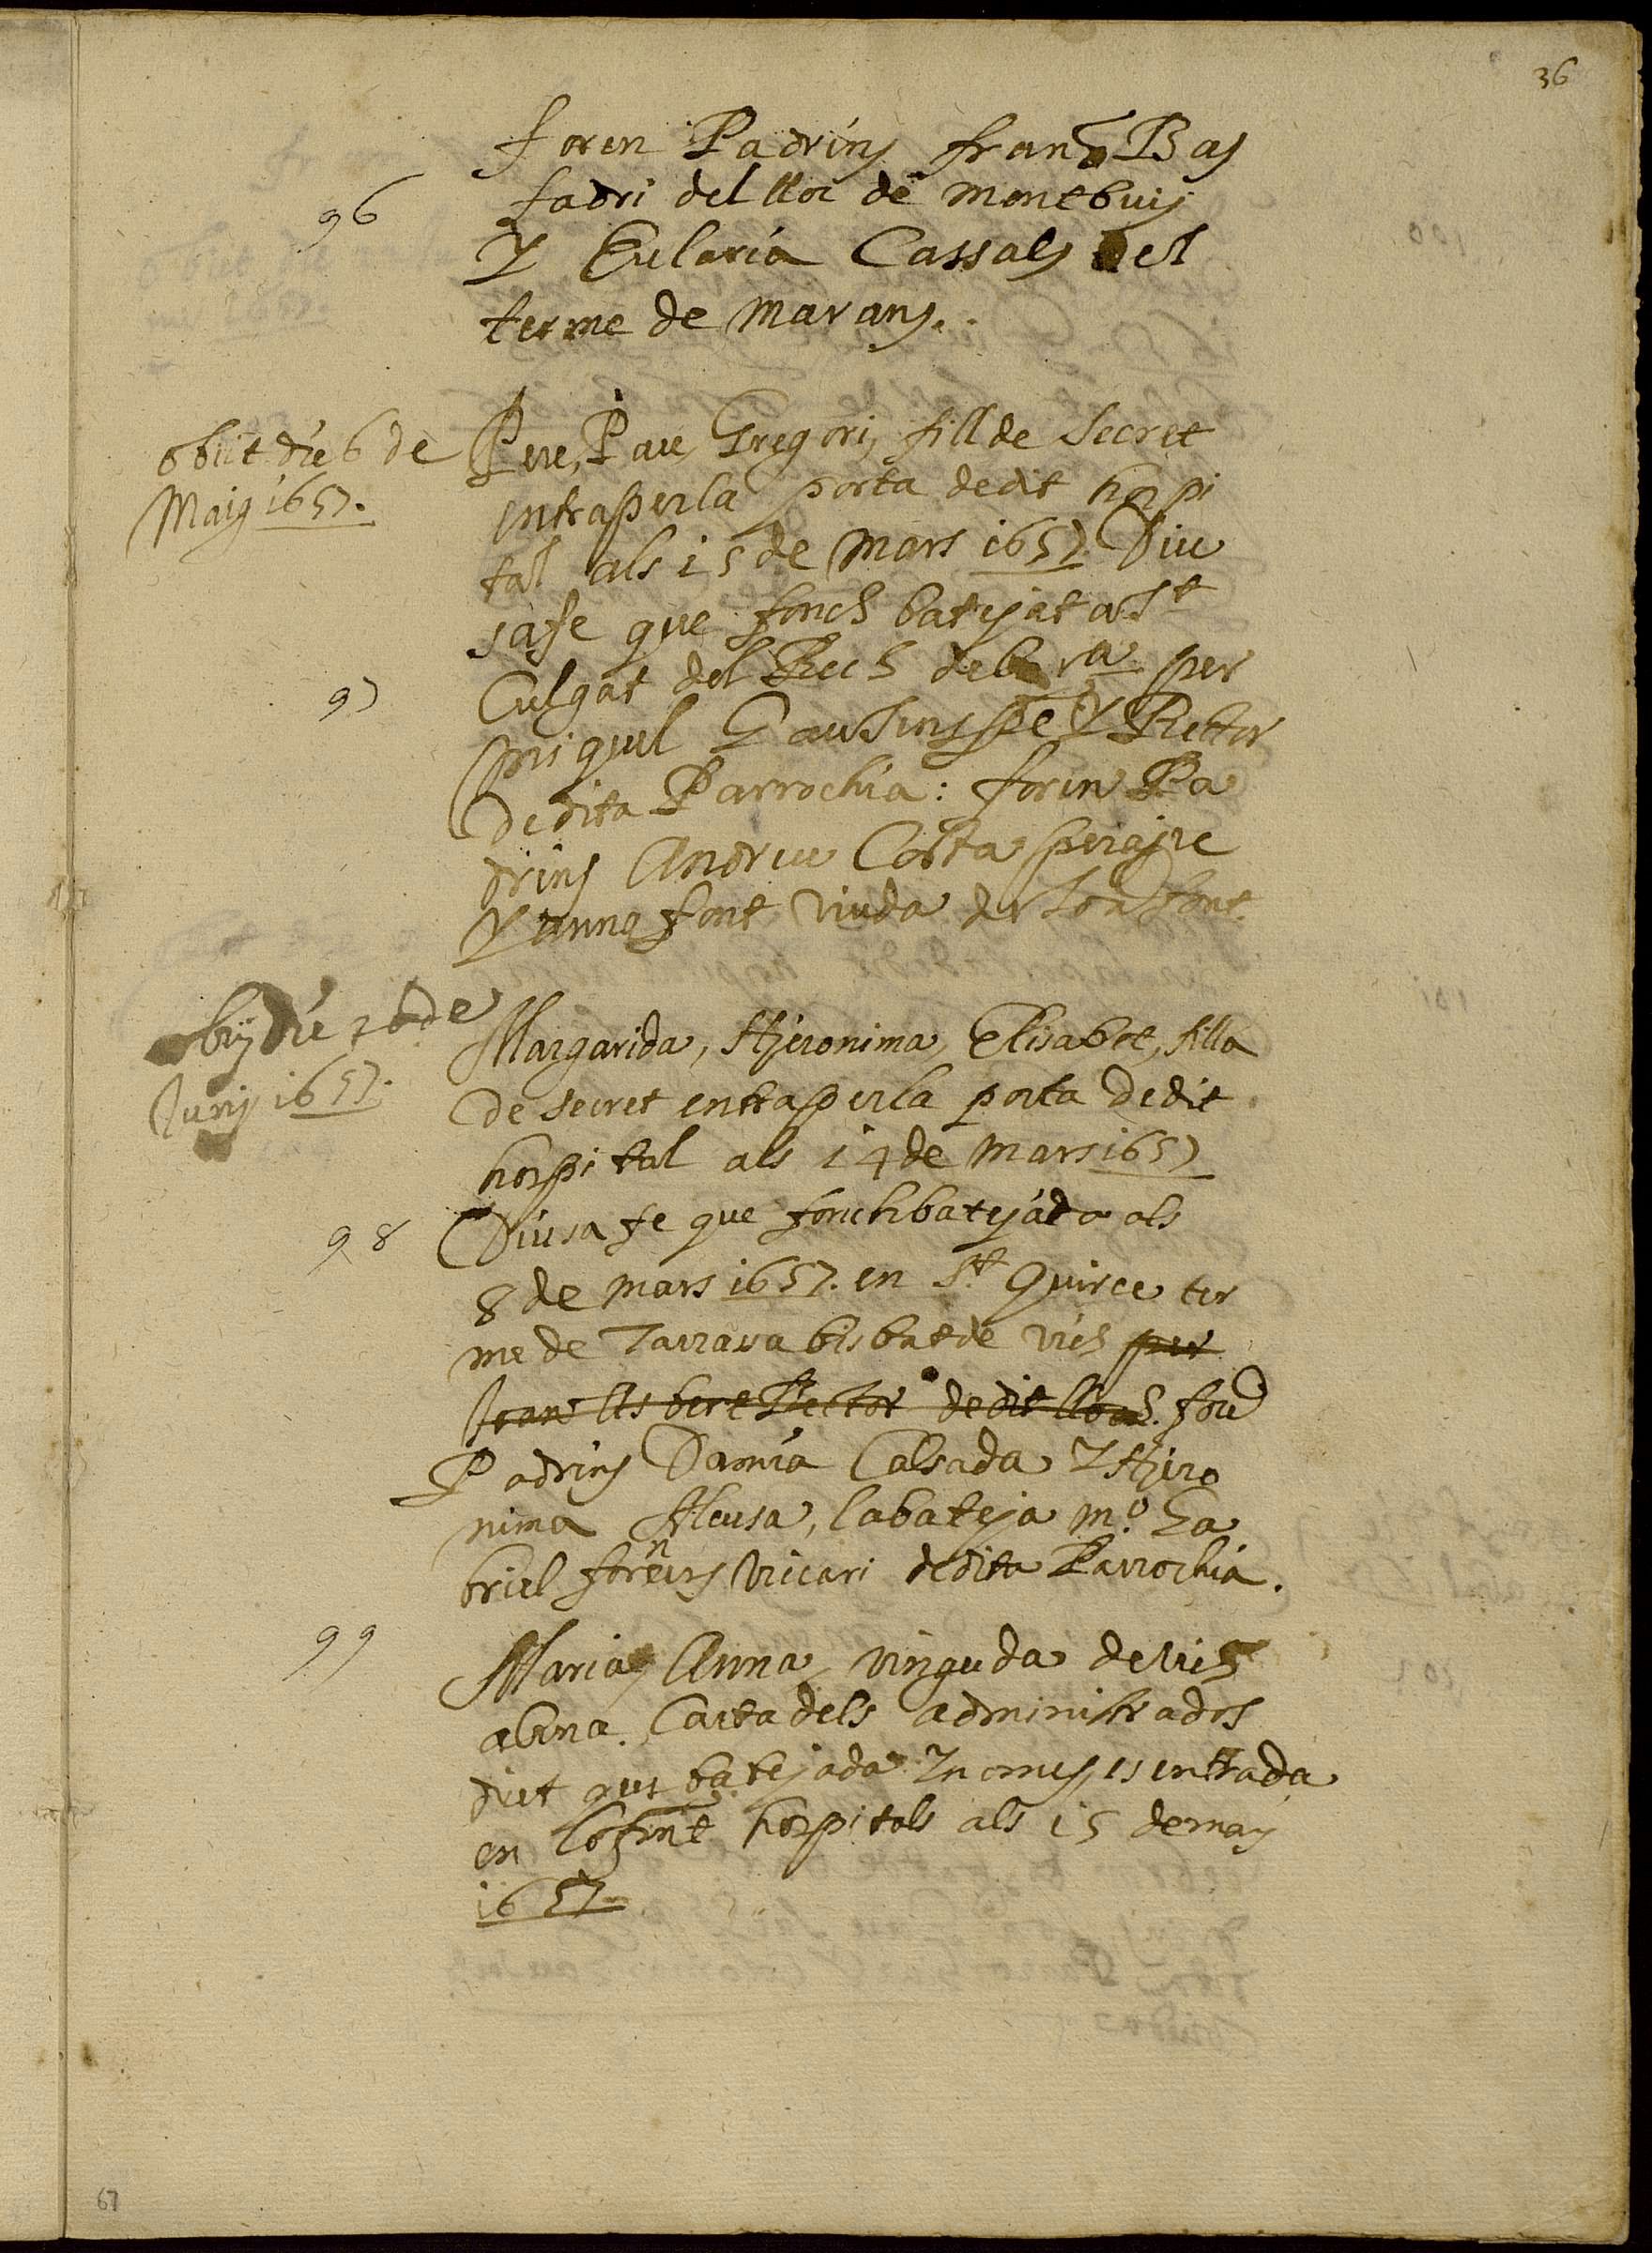 36
foren Padrins fran^c Bas
96
fadri del lloc de Montbuy
Y Eularia Cassals del
terme de Marans.
obiit die 6 de
Maig 1657.
Pere, Pau, Gregori, fill de Secret
entra per la porta de dit hospi
tal als 15 de Mars 1657 Diu
sa fe que fonch batejat a St
97
Culgat del Rech de bar^a per
Miquel pre Y Rettor
de dita Parrochia: foren Pa
drins Andreu Costa peraire
Y anna font viuda de Joan font.
obijt die 26 de
Juny 1657.
Margarida, Hieronima, Elisabet, filla
de secret entra per la porta de dit
hospital als 14 de Mars 1657
98
Diu sa fe que fonch batejada als
8 de Mars 1657. en St Quirce ter
me de Tarrasa bisbat de Vich per
Joan Rector de dit lloch. fou
Padrins Damia Calsada Y Hiero
nima Aleusa, la bateja M.º Ga
briel Vicari de dita Parrochia.
99
Maria, Anna, vinguda de Vich
ab una Carta dels administrados
diet que batejada Y no mes, es entrada
en lo hospitals als 15 de Mars
1657
67